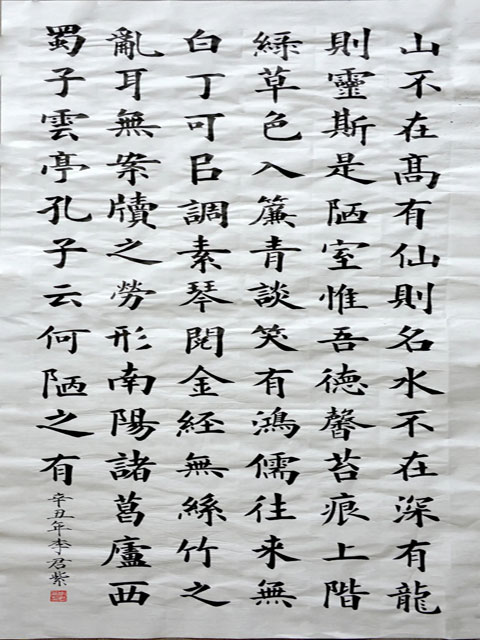 山不在髙有仙則名水不在深有龍
則靈斯是陋室惟吾德馨苔痕上階
綠草色入簾青談笑有鴻儒往來無
白丁可㠯調素琴閱金経無絲竹之
亂耳無案牘之勞形南陽諸葛廬西
蜀子雲亭孔子云何陋之有
辛丑年李君紫